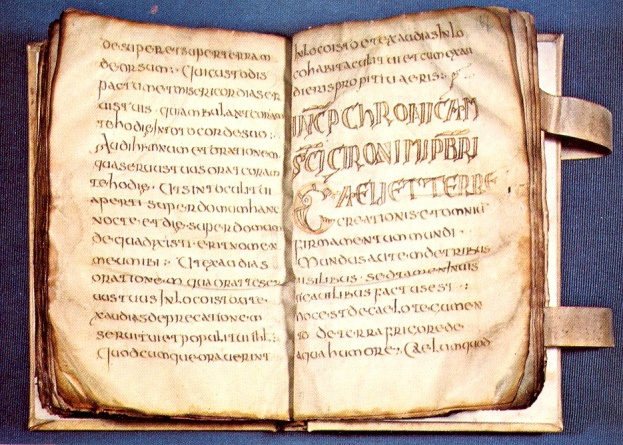 desuper et super terram
deorsum · Qui custodis
pactum et misericordias et
custuis · quambulant coram
te hodie in toto corde suo :
Audi hymnum et orationem
qua servus tuus orat coram
te hodie · Ut sint oculi tui
aperti super domum hanc
nocte et die · super domum
de qua dixisti · erit nomen
meum ibi : Ut exaudias
orationem qua orat servus
tuus in loco isto ad te ·
exaudias deprecationem
servi tui et populi tui ihl :
Quodcumque oraverint
in loco isto et exaudias in lo
co habitaculi tui et cum exau
dieris propitiaberis :
INCP CHRONICAM
SCI CIRONIMI PBRI
CAELI ET TERRE
CREATIONIS ET OMNIU
firmamentum mundi ·
Mundus autem de tribus
visibilibus · sed tamen
factus est :
hoc est de caelo
de terra frigore de
aqua humore : Caelum quod